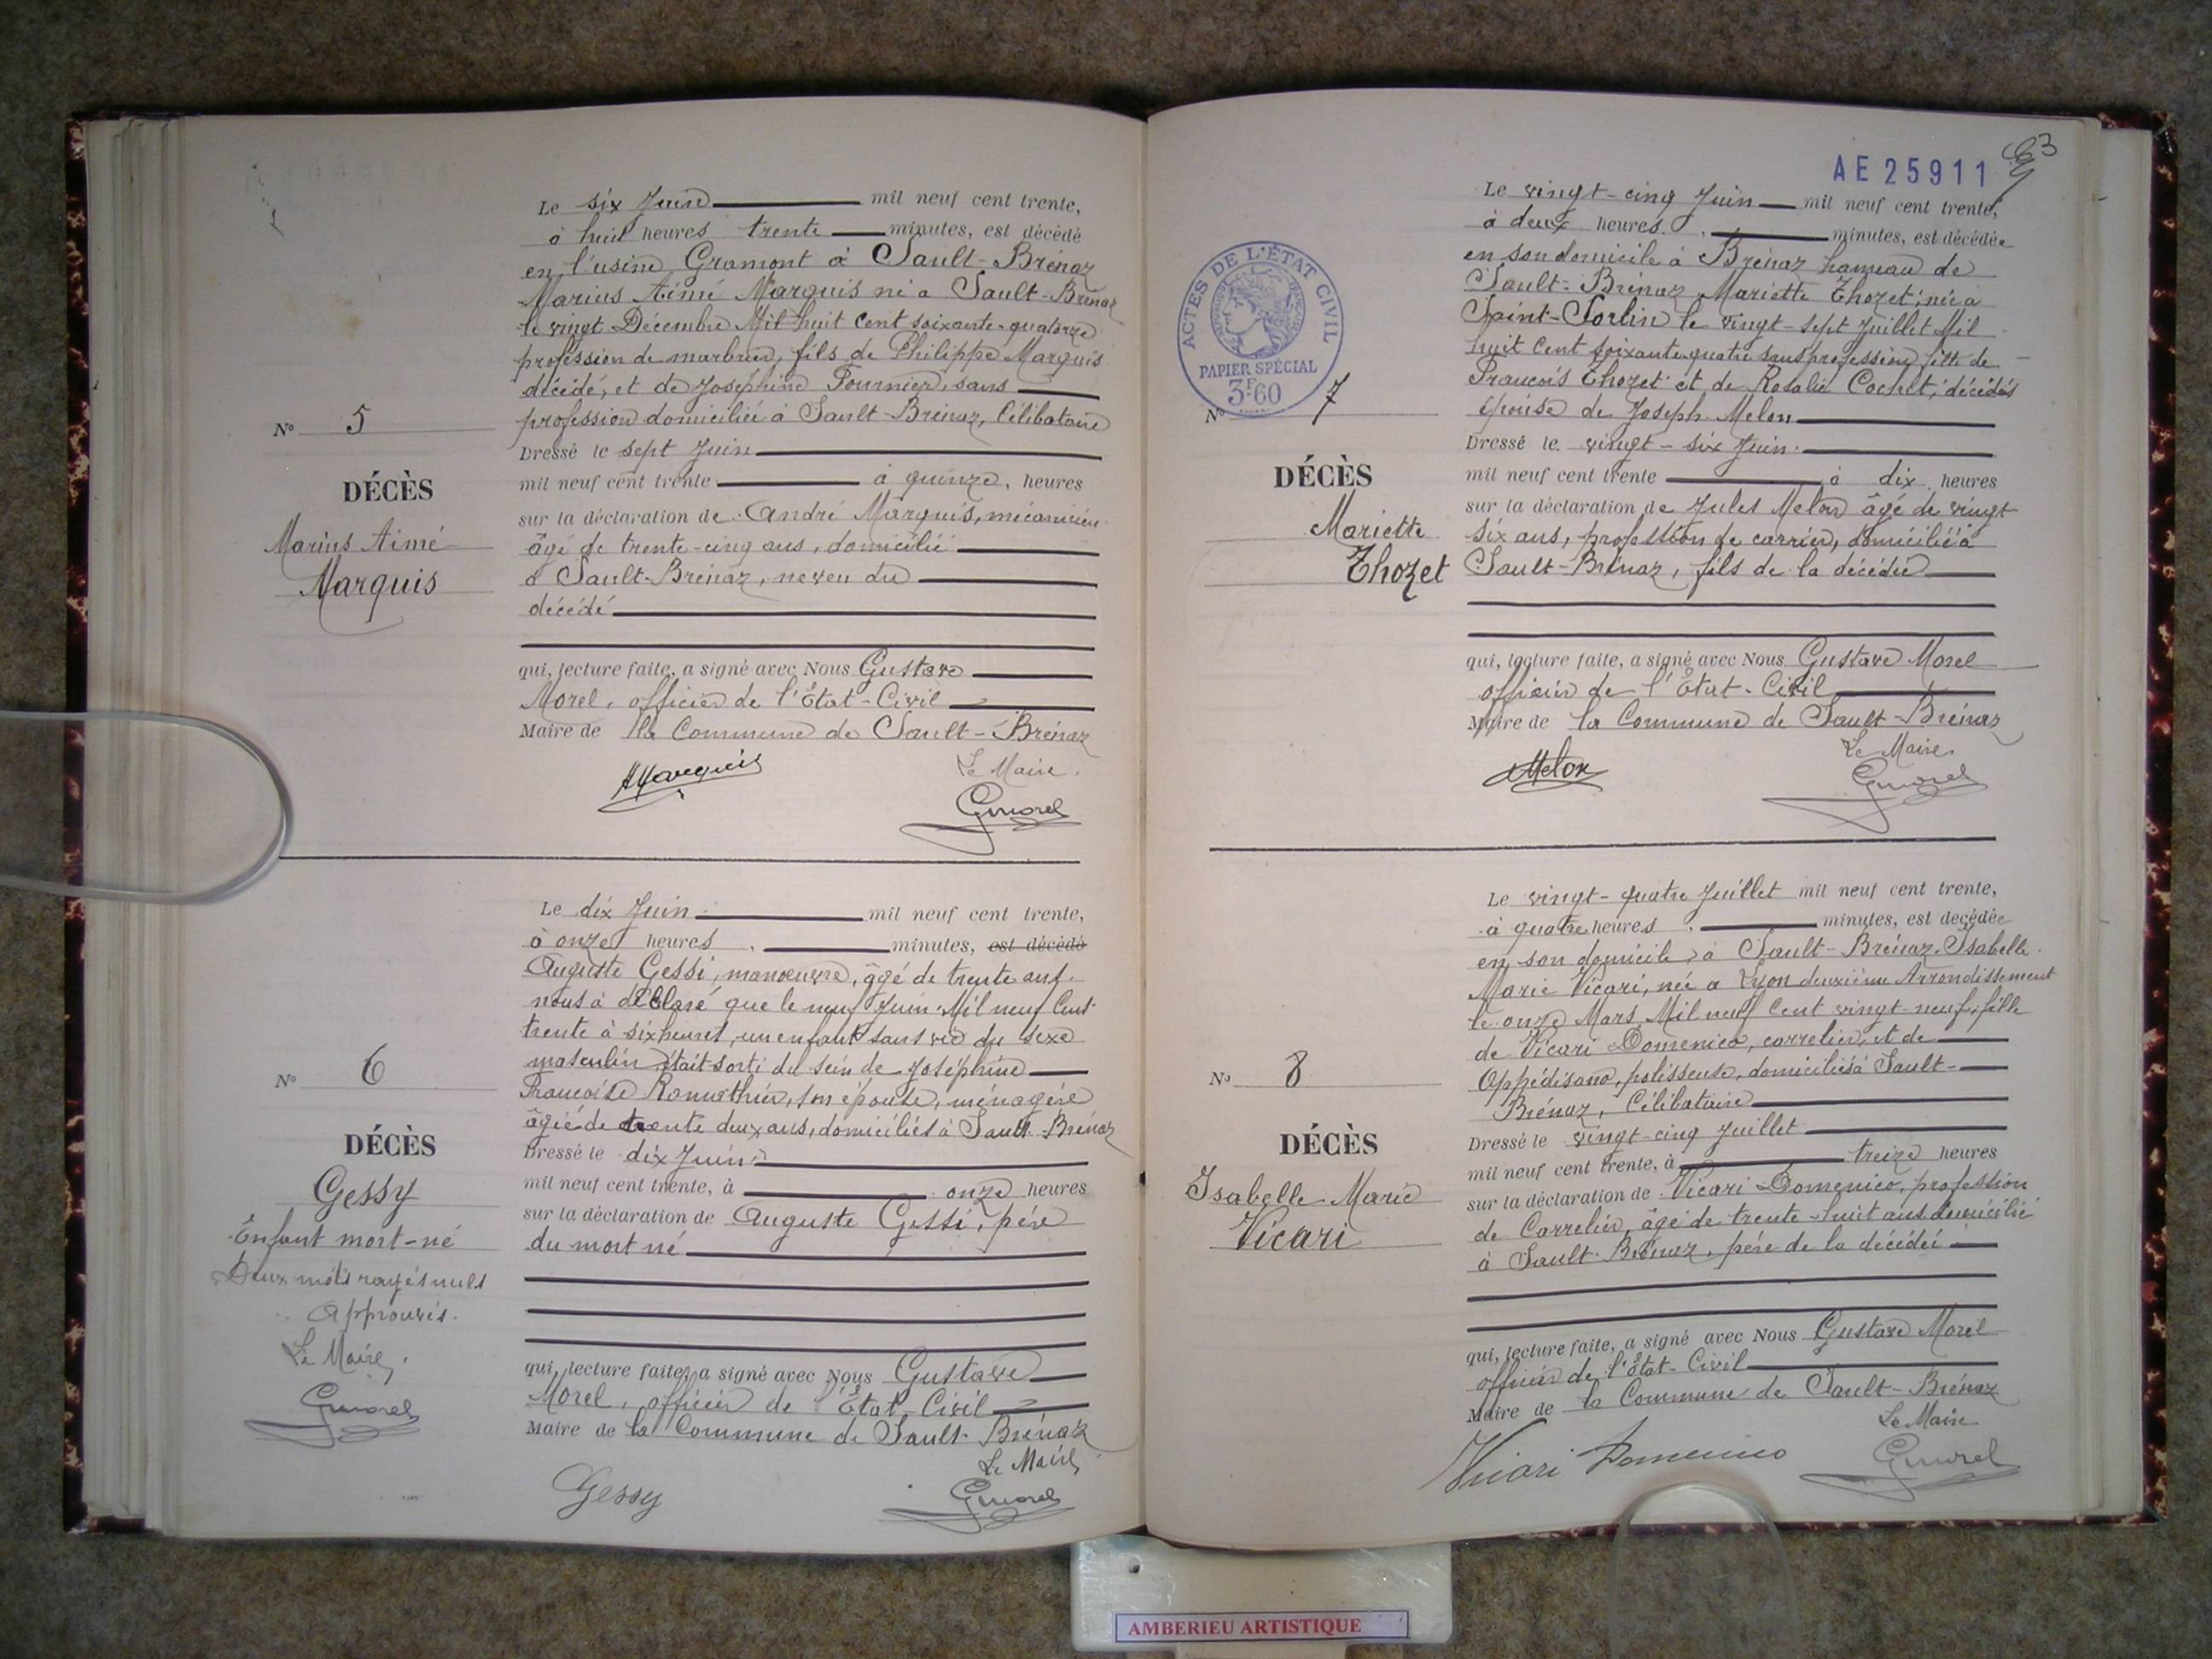 Le six Juin mil neuf cent trente,
à huit heures trente minutes, est décédé
en l'usine Gramont à Sault-Brénaz
Marius Aimé Marquis né à Sault-Brénaz
le vingt Décembre Mil huit Cent soixante-quatorze
profession de marbrier, fils de Philippe Marquis
décédé, et de Joséphine Fournier, sans
profession domiciliée à Sault-Brénaz, Célibataire
N° 5
Dressé le sept Juin
mil neuf cent trente à quinze, heures
DÉCÈS
sur la déclaration de André Marquis, mécanicien
Marius Aimé
âgé de trente-cinq ans, domicilié
Marquis
à Sault-Brénaz, neveu du
décédé
qui, lecture faite, a signé avec Nous Gustave
Morel, officier de l'État-Civil
Maire de la Commune de Sault-Brénaz
AMarquis
Le Maire.
Gmorel
Le dix Juin mil neuf cent trente,
à onze heures, minutes, est décédé
Auguste Gessi, manoeuvre, âgé de trente ans,
nous a déclaré que le neuf Juin Mil neuf Cent
trente à six heures, un enfant sans vie du sexe
masculin était sorti du sein de Joséphine
Françoise, son épouse, ménagère
âgée de trente deux ans, domiciliés à Sault-Brénaz
N° 6
Dressé le dix Juin
mil neuf cent trente, à onze heures
DÉCÈS
sur la déclaration de Auguste Gessi, père
Gessy
du mort né
Enfant mort-né
Deux mots rayés nuls
Approuvés.
Le Maire,
Gmorel
qui, lecture faite, a signé avec Nous Gustave
Morel, officier de l'État-Civil
Maire de la Commune de Sault-Brénaz
Le Maire,
Gessy
Gmorel
AE 25911
63
Le vingt-cinq Juin mil neuf cent trente,
à deux heures, minutes, est décédée
en son domicile à Brénaz hameau de
Sault-Brénaz Mariette Thozet, née à
Saint-Sorlin le vingt-sept Juillet Mil
huit Cent soixante quatre sans profession, fille de
François Thozet et de Rosalie Cochet, décédés
épouse de Joseph Melon
ACTES DE L'ÉTAT CIVIL
RÉPUBLIQUE FRANÇAISE
PAPIER SPÉCIAL
3F60
N° 7
Dressé le vingt-six Juin
mil neuf cent trente à dix heures
DÉCÈS
sur la déclaration de Jules Melon âgé de vingt
Mariette
six ans, profession de carrier, domicilié à
Thozet
Sault-Brénaz, fils de la décédée
qui, lecture faite, a signé avec Nous Gustave Morel
officier de l'État-Civil
Maire de la Commune de Sault-Brénaz
Le Maire
Melon
Gmorel
Le vingt-quatre Juillet mil neuf cent trente,
à quatre heures, minutes, est décédée
en son domicile à Sault-Brénaz, Isabelle
Marie Vicari, née à Lyon deuxième Arrondissement
le onze Mars Mil neuf Cent vingt neuf, fille
de Vicari Domenico, carrelier, et de
Oppédisano, polisseuse, domiciliés à Sault-
Brénaz, Célibataire
N° 8
Dressé le vingt-cinq Juillet
mil neuf cent trente, à treize heures
DÉCÈS
sur la déclaration de Vicari Domenico, profession
Isabelle-Marie
de Carrelier, âgé de trente-huit ans domicilié
Vicari
à Sault-Brénaz, père de la décédée
qui, lecture faite, a signé avec Nous Gustave Morel
officier de l'État-Civil
Maire de la Commune de Sault-Brénaz
Le Maire
Vicari Domenico
Gmorel
AMBERIEU ARTISTIQUE